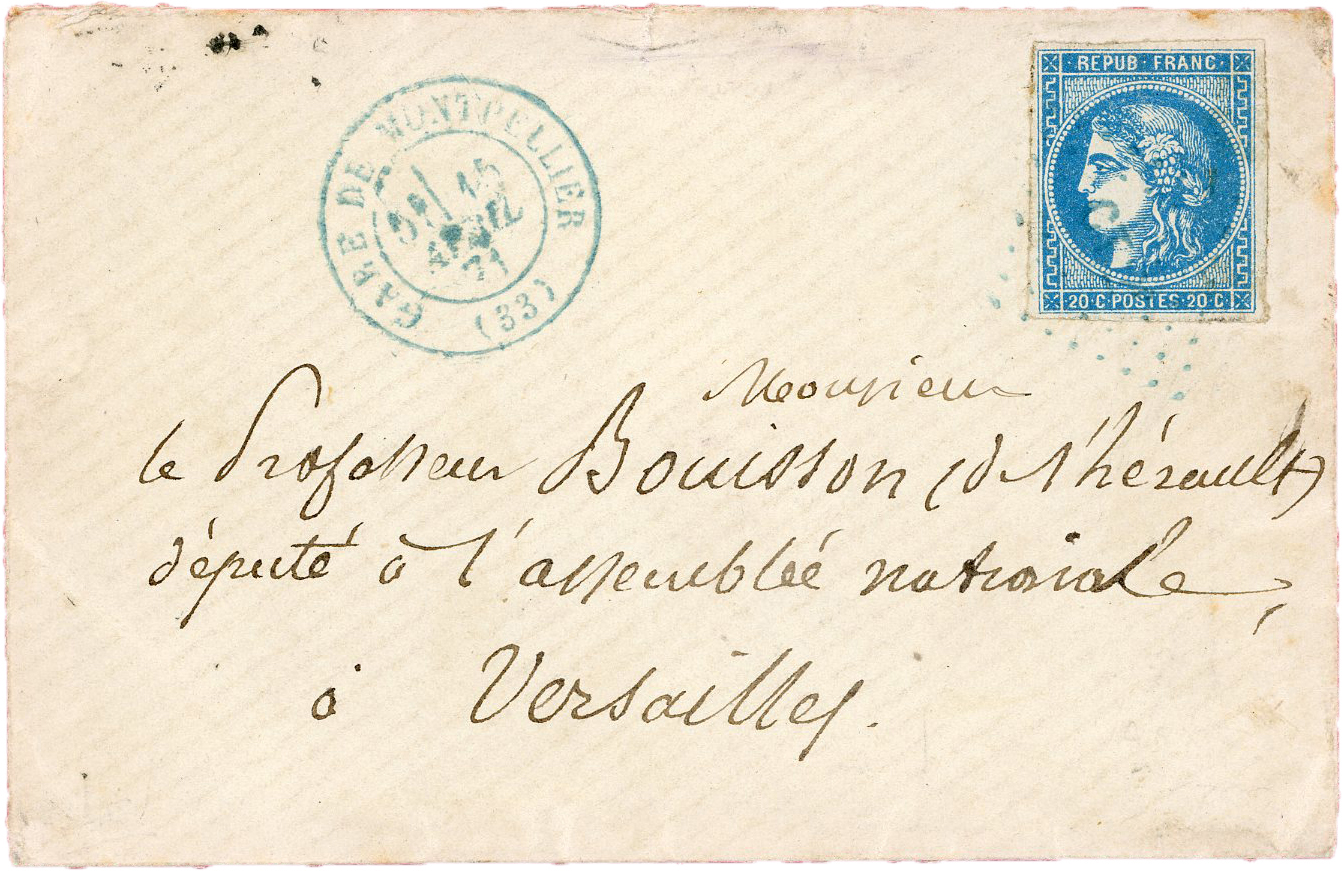 GARE DE MONTPELLIER
15
AVRIL
71
(33)
REPUB · FRANC ·
20 · C · POSTES · 20 · C ·
Monsieur
le Professeur Bouisson (de l'hérault)
député à l'assemblée nationale,
à Versailles.